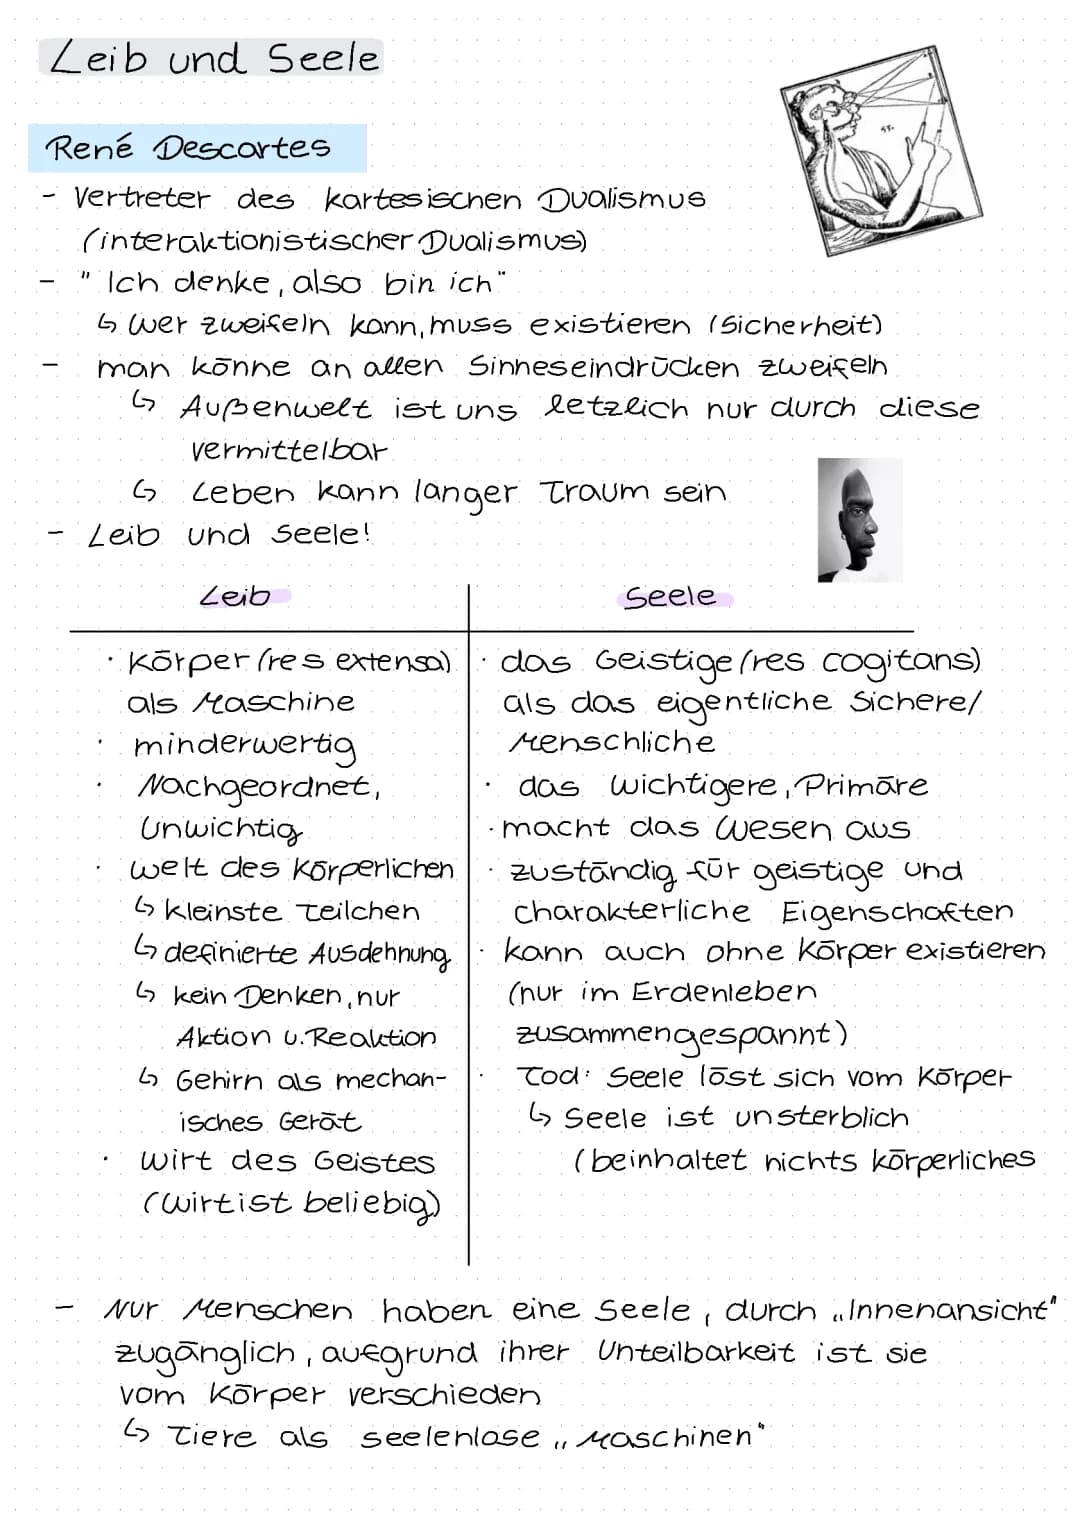 Leib und Seele
René Descartes
- Vertreter des kartesischen Dualismus
(interaktionistischer Dualismus)
- "Ich denke, also bin ich"
↳ Wer zweifeln kann, muss existieren (Sicherheit)
- man könne an allen Sinneseindrücken zweifeln
↳ Außenwelt ist uns letzlich nur durch diese
vermittelbar
↳ Leben kann langer Traum sein
- Leib und Seele!
Leib
· Körper (res extensa)
als Maschine
· minderwertig
· Nachgeordnet,
Unwichtig
· Welt des Körperlichen
↳ kleinste Teilchen
↳ definierte Ausdehnung
↳ kein Denken, nur
Aktion u. Reaktion
↳ Gehirn als mechan-
isches Gerät
· Wirt des Geistes
(Wirt ist beliebig)
Seele
· das Geistige (res cogitans)
als das eigentliche Sichere/
Menschliche
· das Wichtigere, Primäre
· macht das Wesen aus
· zuständig für geistige und
charakterliche Eigenschaften
· kann auch ohne Körper existieren
(nur im Erdenleben
zusammengespannt)
· Tod: Seele löst sich vom Körper
↳ Seele ist unsterblich
(beinhaltet nichts körperliches
- Nur Menschen haben eine Seele, durch „Innenansicht"
zugänglich, aufgrund ihrer Unteilbarkeit ist sie
vom Körper verschieden
↳ Tiere als seelenlose „Maschinen"